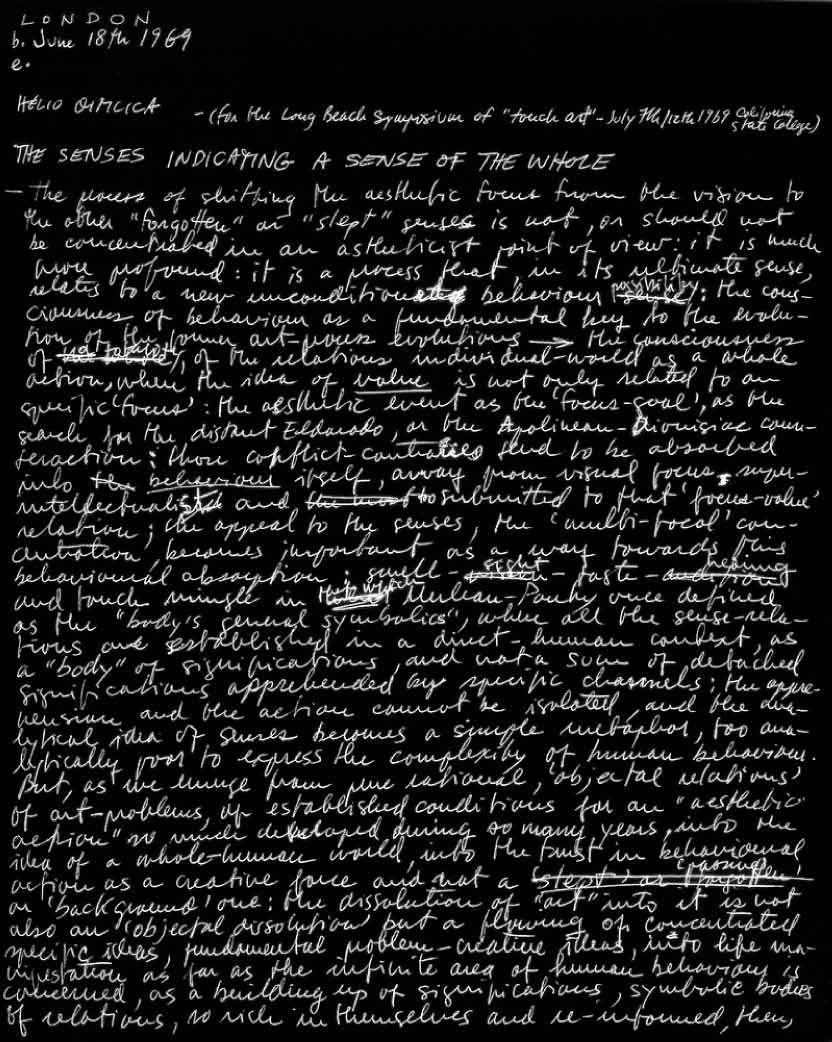 LONDON
b. June 18th 1969
e.
HÉLIO OITICICA - (for the Long Beach Symposium of "touch art" - July 7th/12th 1969 California
State College)
THE SENSES INDICATING A SENSE OF THE WHOLE
— The process of shifting the aesthetic focus from the vision to
the other "forgotten" or "slept" senses is not, or should not
be concentrated in an astheticist point of view: it is much
more profound: it is a process that, in its ultimate sense,
relates to a new unconditioned behaviour possibility: the cons-
ciousness of behaviour as a fundamental key to the evolu-
tion of the former art-process evolutions → the consciousness
of , of the relations individual-world as a whole
action, where the idea of value is not only related to an
specific 'focus': the aesthetic event as the 'focus-goal', as the
search for the distant Eldorado, or the Apolinean-Dionisiac coun-
teraction: those conflict-contraries tend to be absorbed
into the behaviour itself, away from visual focus, super-
intellectualistic and to submitted to that 'focus-value'
relation; the appeal to the senses, the 'multi-focal' con-
centration, becomes important as a way towards this
behavioural absorption: smell-sight-taste-hearing
and touch mingle in which Merleau-Ponty once defined
as the "body's general symbolics", where all the sense-rela-
tions are established in a direct-human context, as
a "body" of significations, and not a sum of detached
significations apprehended by specific channels: the appre-
hension and the action cannot be isolated, and the ana-
lytical idea of senses becomes a simple metaphor, too ana-
lytically poor to express the complexity of human behaviour.
But, as we emerge from pure rational, 'objectal relations'
of art-problems, of established conditions for an "aesthetic
action" so much developed during so many years, into the
idea of a whole-human world, into the trust in behavioural
action as a creative force and not a 'slept' or 'forgotten' passive
or 'background' one: the dissolution of "art" into it is not
also an 'objectal dissolution' but a flowing of concentrated
specific ideas, fundamental problem-creative ideas, into life ma-
nifestation as far as the infinite area of human behaviour is
concerned, as a building up of significations, symbolic bodies
of relations, so rich in themselves and re-informed, then,